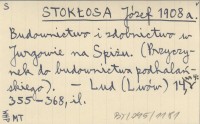 S
STOKŁOSA Józef 1908 a.
Budownictwo i zdobnictwo w
Jurgowie na Spiszu. (Przyczy-
nek do budownictwa podhalań-
skiego). – Lud (Lwów) 14,
355–368, il.
MT